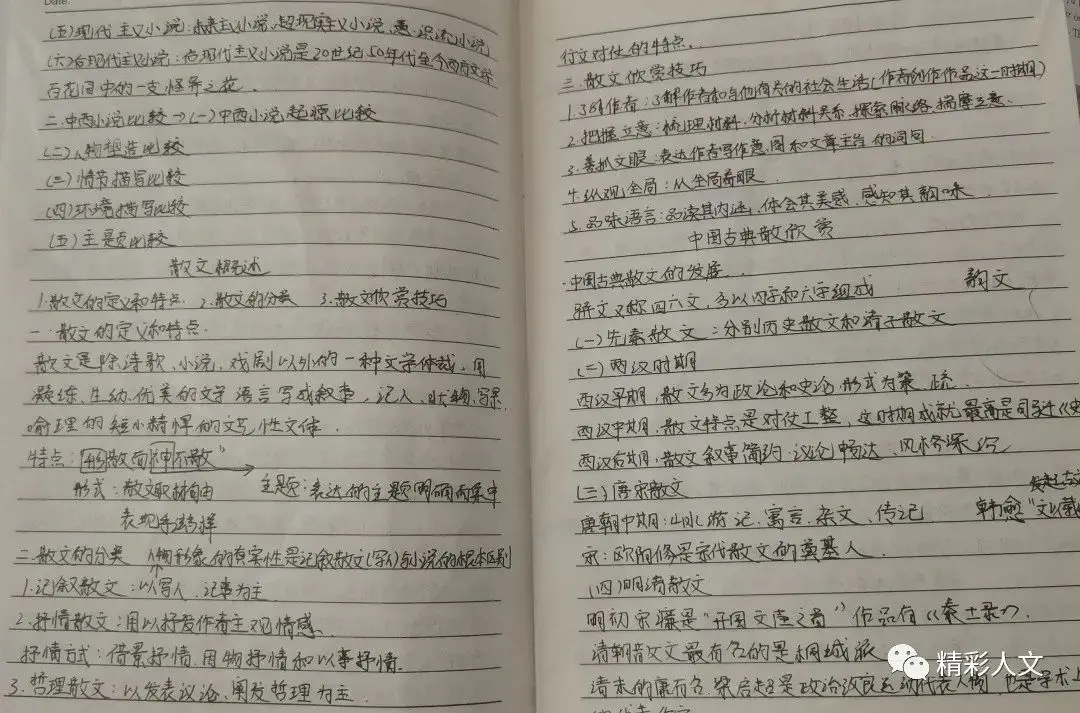 Date:
(五)现代主义小说:未来主义小说、超现实主义小说、意识流小说
(六)后现代主义小说:后现代主义小说是20世纪50年代至今西方文学
百花园中的一支怪异之花.
二.中西小说比较→(一)中西小说起源比较
(二)人物塑造比较
(三)情节描写比较
(四)环境描写比较
(五)主题比较
散文概述
1.散文的定义和特点. 2.散文的分类 3.散文欣赏技巧
一.散文的定义和特点.
散文是除诗歌、小说、戏剧以外的一种文学体裁,用
凝练、生动、优美的文学语言写成叙事,记人、状物、写景、
喻理的短小精悍的文艺性文体.
特点:“形散而神不散”
形式:散文取材自由 主题:表达的主题明确而集中
表现手法多样
二.散文的分类 人物形象的真实性是记叙散文(写人)与小说的根本区别
1.记叙散文:以写人、记事为主
2.抒情散文:用以抒发作者主观情感.
抒情方式:借景抒情、因物抒情和以事抒情.
3.哲理散文:以发表议论、阐发哲理为主.
行文对仗的特点.
三.散文欣赏技巧
1.了解作者:了解作者和与他有关的社会生活(作者创作作品这一时期)
2.把握立意:梳理材料,分析材料关系,探索脉络,揣摩立意.
3.善抓文眼:表达作者写作意图和文章主旨的词句.
4.纵观全局:从全局着眼
5.品味语言:品读其内涵、体会其美感、感知其韵味
中国古典散欣赏
中国古典散文的发展.
骈文又称四六文,多以四字和六字组成 韵文
(一)先秦散文:分别历史散文和诸子散文
(二)两汉时期
西汉早期,散文分为政论和史论,形式为策、疏.
西汉中期,散文特点是对仗工整,这时期成就最高是司马迁《史
西汉后期,散文叙事简约、议论畅达、风格深沉
(三)唐宋散文
唐朝中期:山水游记、寓言、杂文、传记 韩愈“文以载
宋:欧阳修是宋代散文的奠基人.
(四)明清散文
明初宋濂是“开国文臣之首” 作品有《秦士录》.
清朝散文最有名的是桐城派
清末的康有为、梁启超是政治改良运动代表人物,也是学术上
精彩人文